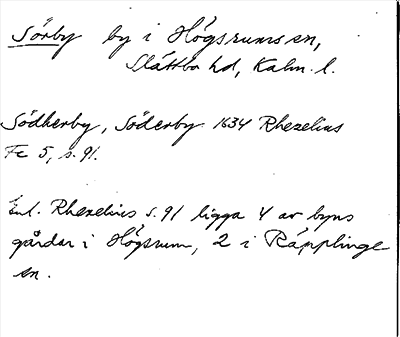 Sörby by i Högsrums sn,
Slättbo hd, Kalm. l.
Södherby, Söderby 1634 Rhezelius
Fc 5, s. 91.
Enl. Rhezelius s. 91 ligga 4 av byns
gårdar i Högsrum, 2 i Räpplinge
sn.